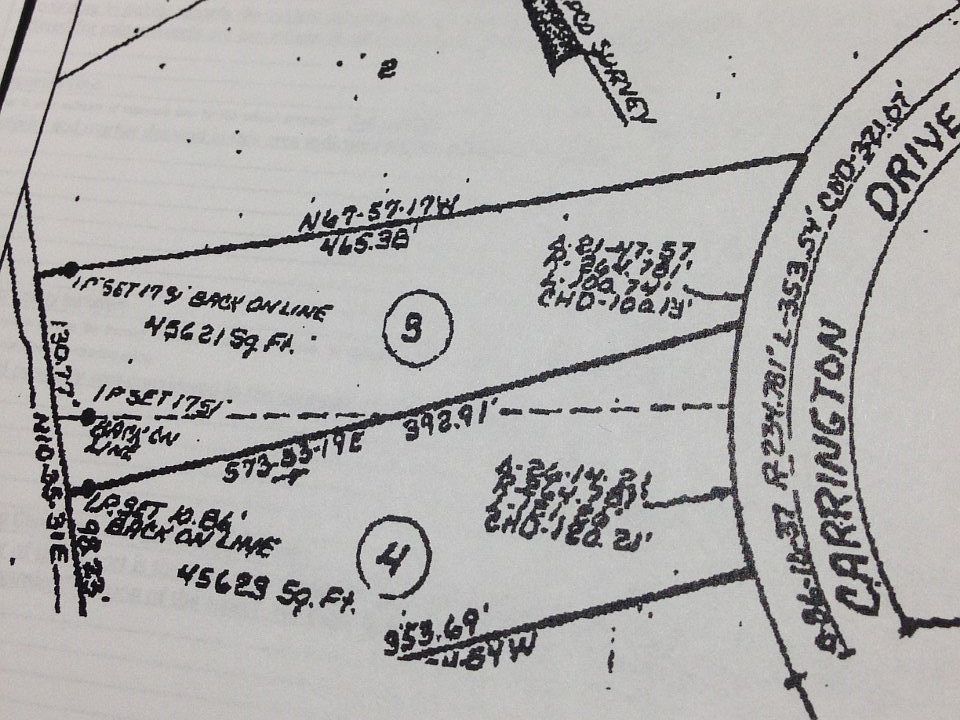 2
SURVEY
N67-57-17W
465.38'
I P SET 17.9' BACK ON LINE
45621 Sq. Ft.
3
Δ-21-47-57
R-264.781'
L-100.74'
CHD-100.13'
130.77'
I P SET 17.51'
BACK ON
LINE
N10-35-31E
S73-53-19E
392.91'
I.P. SET 10.86'
BACK ON LINE
98.23'
45623 Sq. Ft.
4
Δ-26-14-21
R-264.781'
CHD-120.21'
353.69'
R-234.781' L-353.54' CHD-321.07'
CARRINGTON
DRIVE